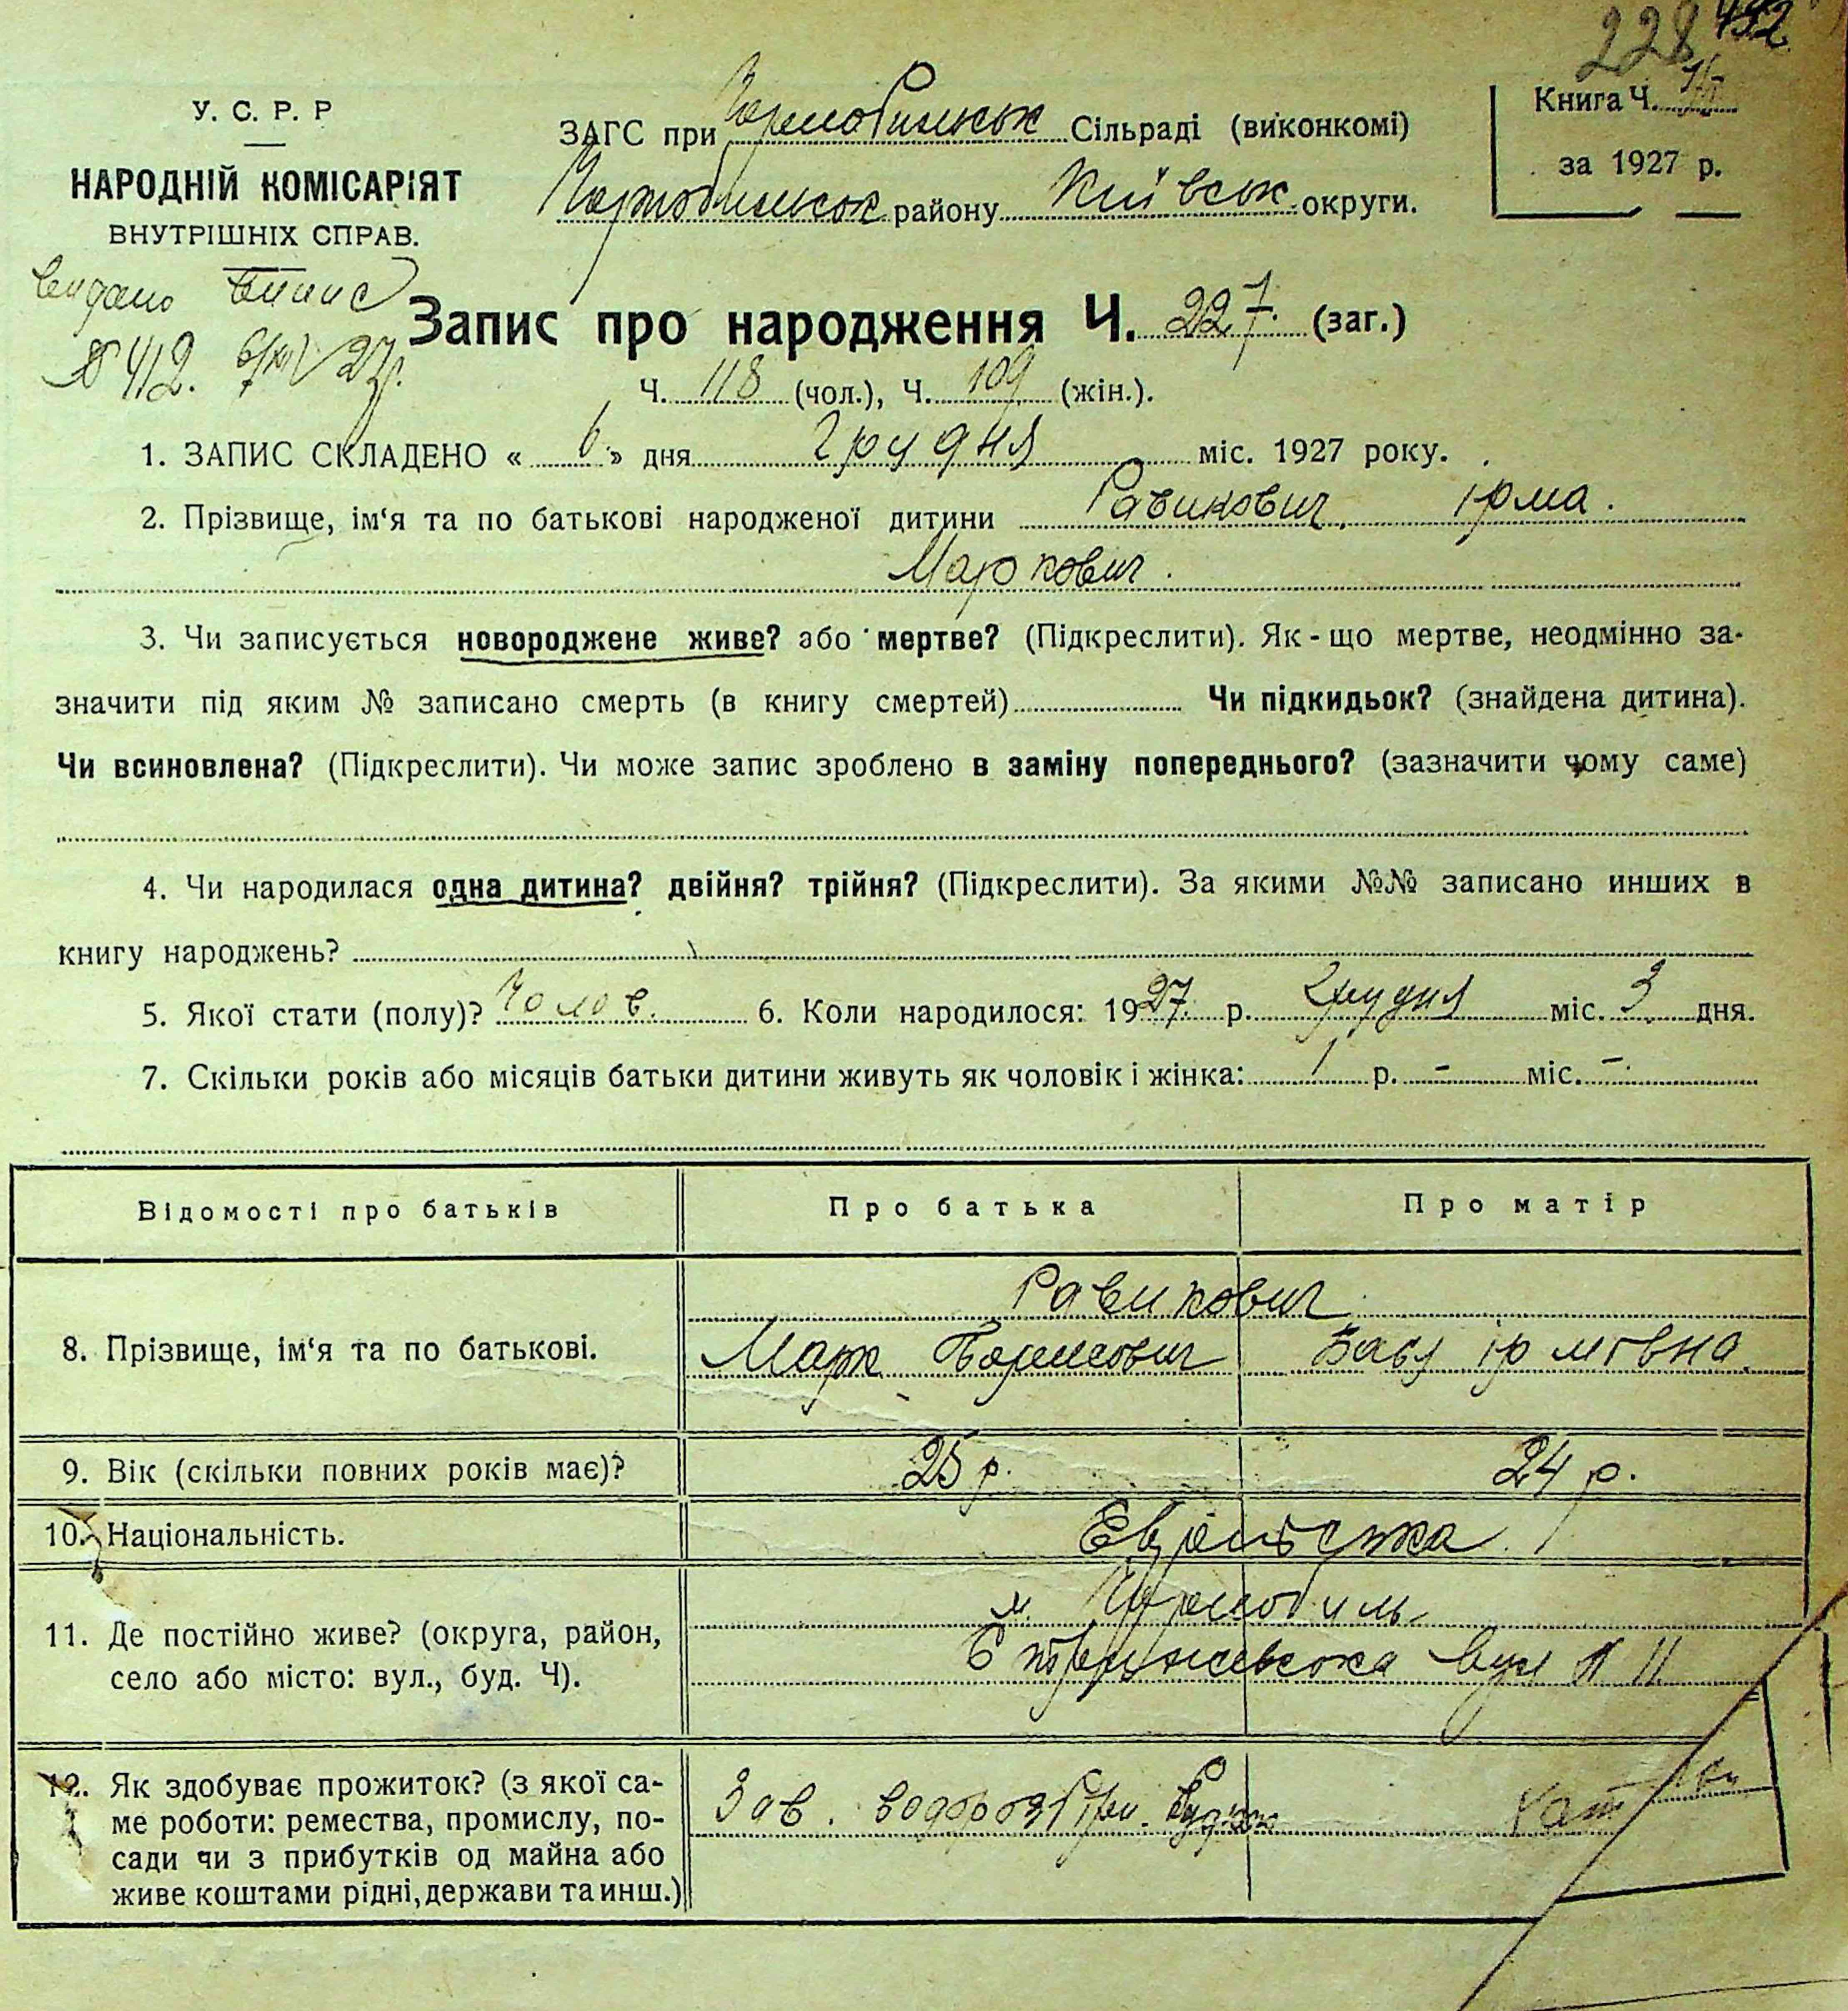 228 492
У. С. Р. Р
НАРОДНІЙ КОМІСАРІЯТ
ВНУТРІШНІХ СПРАВ.
ЗАГС при Чернобильськ Сільраді (виконкомі)
Чорнобильськ району Київськ. округи.
Книга Ч.
за 1927 р.
видано випис
№ 412. 6/XII 27р.
Запис про народження Ч. 227. (заг.)
Ч. 118 (чол.), Ч. 109 (жін.).
1. ЗАПИС СКЛАДЕНО « 6 » дня Грудня міс. 1927 року.
2. Прізвище, ім‘я та по батькові народженої дитини Равикович ірма.
Маркович.
3. Чи записується новороджене живе? або мертве? (Підкреслити). Як-що мертве, неодмінно за-
значити під яким № записано смерть (в книгу смертей) Чи підкидьок? (знайдена дитина).
Чи всиновлена? (Підкреслити). Чи може запис зроблено в заміну попереднього? (зазначити чому саме)
4. Чи народилася одна дитина? двійня? трійня? (Підкреслити). За якими №№ записано инших в
книгу народжень?
5. Якої стати (полу)? Чолов. 6. Коли народилося: 1927. р. Грудня міс. 3 дня.
7. Скільки років або місяців батьки дитини живуть як чоловік і жінка: 1 р. – міс. –
Відомості про батьків Про батька Про матір
Равикович
8. Прізвище, ім‘я та по батькові. Марк Борисович Бася ірмівна
9. Вік (скільки повних років має)? 25 р. 24 р.
10. Національність. Єврейська
м. Чорнобиль
11. Де постійно живе? (округа, район,
село або місто: вул., буд. Ч). вул № 11
12. Як здобуває прожиток? (з якої са-
ме роботи: ремества, промислу, по-
сади чи з прибутків од майна або
живе коштами рідні, держави та инш.)
Зав.